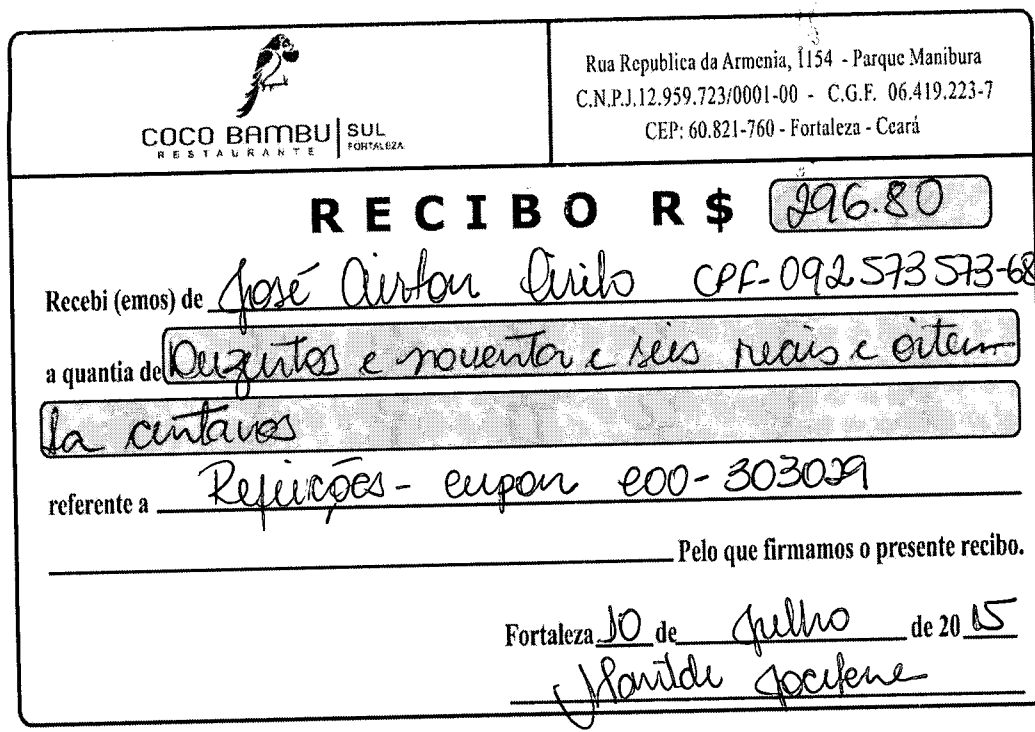 COCO BAMBU SUL
RESTAURANTE FORTALEZA
Rua Republica da Armenia, 1154 - Parque Manibura
C.N.P.J.12.959.723/0001-00 - C.G.F. 06.419.223-7
CEP: 60.821-760 - Fortaleza - Ceará
RECIBO R$ 296.80
Recebi (emos) de José Airton Cirilo CPF-092573573-68
a quantia de Duzentos e noventa e seis reais e oiten
ta centavos
referente a Refeições - cupon COO-303029
Pelo que firmamos o presente recibo.
Fortaleza 10 de Julho de 2015